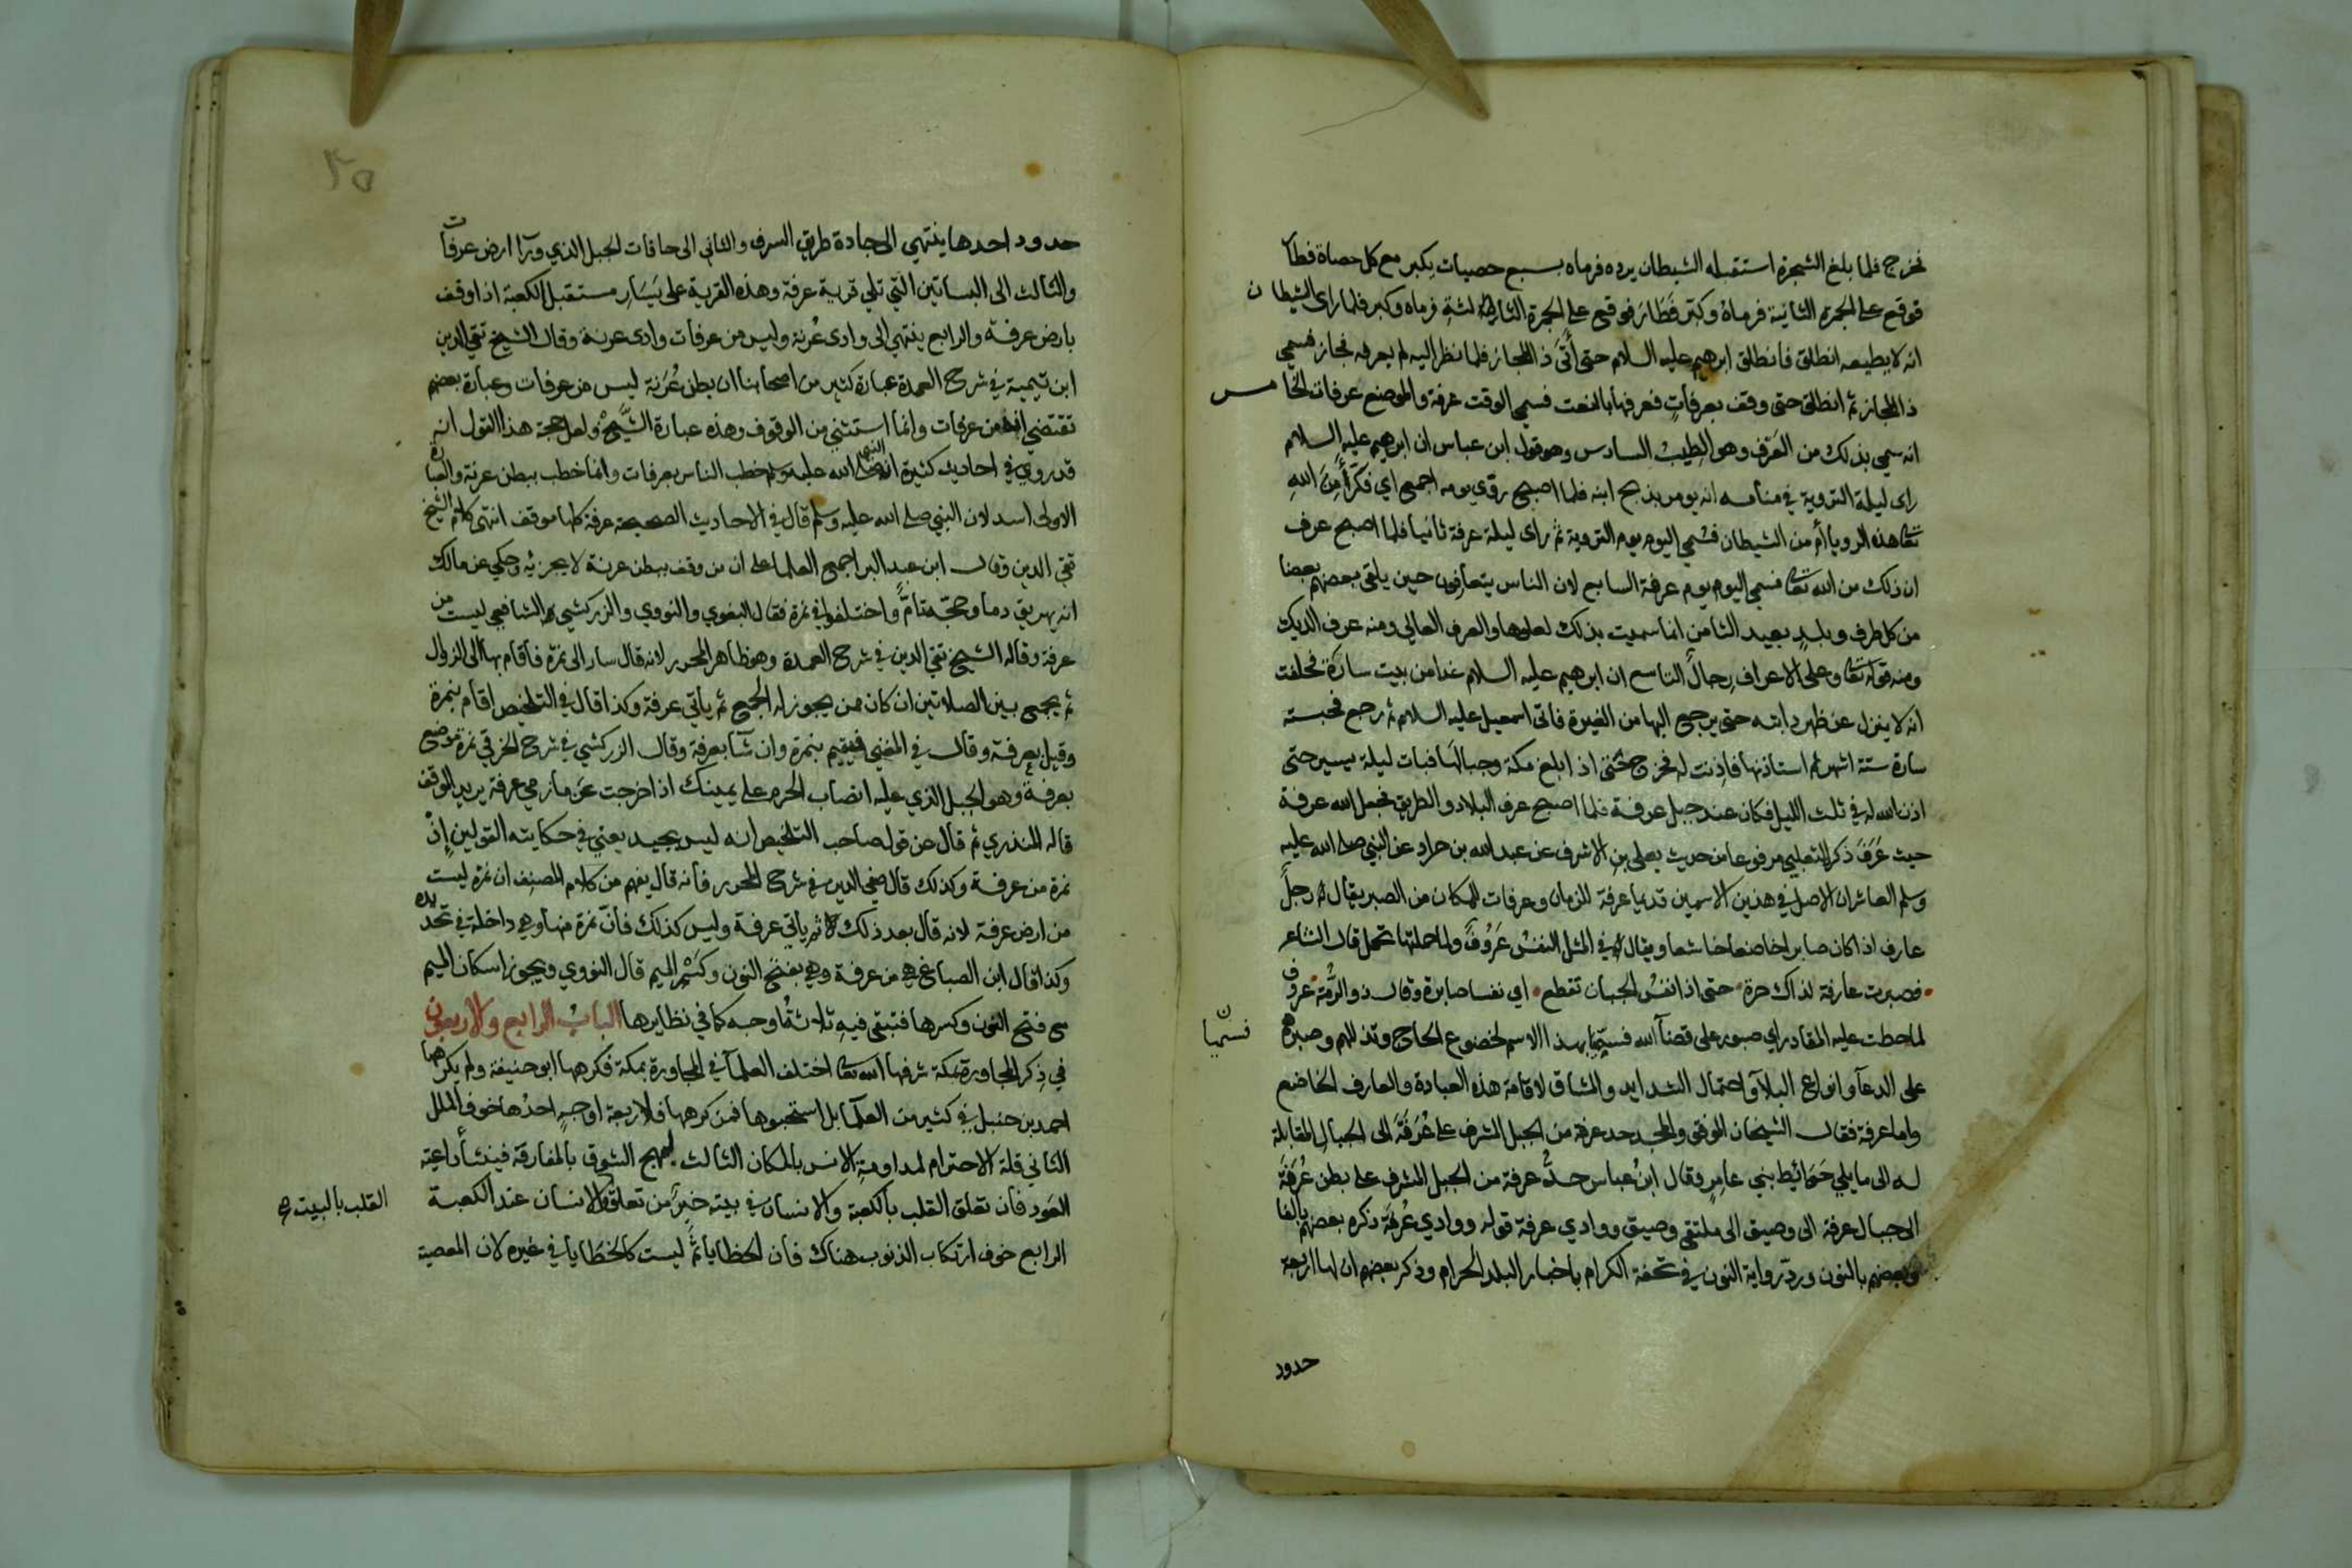 فخرج فلما بلغ الشجرة استقبله الشيطان يرده فرماه بسبع حصيات يكبر مع كل حصاة فطار
فوقع على الجمرة الثانية فرماه وكبر فطار فوقع على الجمرة الثالثة فرماه وكبر فلما راى الشيطان
انه لا يطيعه انطلق فانطلق ابرهيم عليه السلام حتى أتى ذا المجاز فلما نظر اليه لم يعرفه فجاز فسمي
ذا المجاز ثم انطلق حتى وقف بعرفات فعرفها بالنعت فسمي الوقت عرفة والموضع عرفات الخامس
انه سمي بذلك من العَرْف وهو الطيب السادس وهو قول ابن عباس ان ابرهيم عليه السلام
راى ليلة التروية في منامه انه يومر بذبح ابنه فلما اصبح روّى يومه اجمع اي فكّر أمِنَ الله
تعالى هذه الرويا أم من الشيطان فسمي اليوم يوم التروية ثم راى ليلة عرفة ثانيا فلما اصبح عرف
ان ذلك من الله تعالى فسمي اليوم يوم عرفة السابع لان الناس يتعارفون حين يلقى بعضهم بعضا
من كل طرف وبلد بعيد الثامن انما سميت بذلك لعلوها والعرف العالي ومنه عرف الديك
ومنه قوله تعالى وعلى الاعراف رجال التاسع ان ابرهيم عليه السلام غدا من بيت سارة فحلفت
انه لا ينزل عن ظهر دابته حتى يرجع اليها من الغيرة فاتى اسمعيل عليه السلام ثم رجع فحبسته
سارة ستة اشهر ثم استاذنها فاذنت له فخرج حتى اذا بلغ مكة وجبالها فبات ليلة يسير حتى
اذن الله له في ثلث الليل فكان عند جبل عرفة فلما اصبح عرف البلاد والطريق فجعل الله عرفة
حيث عَرَفَ ذكره الثعلبي مرفوعا من حديث يعلى بن الاشرف عن عبد الله بن جراد عن النبي صلى الله عليه
وسلم العاشر ان الاصل في هذين الاسمين قديما عرفة للزمان وعرفات للمكان من الصبر يقال رجل
عارف اذا كان صابرا خاضعا خاشعا ويقال في المثل النفسُ عَرُوفٌ ولما حملتها تحمل قال الشاعر
فصبرت عارفة لذاك حرة حتى اذا نفسُ الجبان تقطع اي نفسا صابرة وقال ذو الرُّمة عروف
لما حطت عليه المقادر اي صبور على قضآ الله فسميا بهذا الاسم لخضوع الحاج وتذللهم وصبرهم
فسمّيا
على الدعآ وانواع البلآ واحتمال الشدايد والمشاق لاقامة هذه العبادة والعارف الخاضع
واما عرفة فقال الشيخان الموفق والمجد حد عرفة من الجبل المشرف على عُرَنَة الى الجبال المقابلة
له الى ما يلي حَوَائِط بني عامر وقال ابنُ عباس حدُّ عرفة من الجبل المشرف على بطن عُرَنَة
الى جبال عرفة الى وصيق الى ملتقى وصيق ووادي عرفة قوله ووادي عُرفة ذكره بعضهم بالفا
وبعضهم بالنون وردّ رواية النون في تحفة الكرام باخبار البلد الحرام وذكر بعضهم ان لها اربعة
حدود
٣٥
حدود احدها ينتهي الى جادة طريق السرف والثاني الى حافات الجبل الذي ورآ ارض عرفات
والثالث الى البساتين التي تلي قرية عرفة وهذه القرية على يَسَار مستقبل الكعبة اذا وقف
بارض عرفة والرابع ينتهي الى وادى عُرنة وليس من عرفات وادى عرنة وقال الشيخ تقي الدين
ابن تيمية في شرح العمدة عبارة كثير من اصحابنا ان بطن عُرَنة ليس من عرفات وعبارة بعضهم
تقتضي انه من عرفات وانما استثني من الوقوف وهذه عبارة الشيخ ولعل حجة هذا القول انه
قد روي في احاديث كثيرة ان النبي صلى الله عليه وسلم خطب الناس بعرفات وانما خطب ببطن عرنة والعبارة
الاولى اسد لان النبي صلى الله عليه وسلم قال في الاحاديث الصحيحة عرفة كلها موقف انتهى كلام الشيخ
تقي الدين وقال ابن عبد البر اجمع العلما على ان من وقف ببطن عرنة لا يجزيه وحكي عن مالك
انه يهريق دما وحجّه تامٌّ واختلفوا في نمرة فقال البغوي والنووي والزركشي الشافعي ليست من
عرفة وقاله الشيخ تقي الدين في شرح العمدة وهو ظاهر المحرر لانه قال سار الى نمرة فأقام بها الى الزوال
ثم يجمع بين الصلاتين ان كان ممن يجوز له الجمع ثم ياتي عرفة وكذا قال في التلخيص اقام بنمرة
وقيل بعرفة وقال في المغني فيقيم بنمرة وان شآ بعرفة وقال الزركشي في شرح الخرقي نمرة موضع
بعرفة وهو الجبل الذي عليه انصاب الحرم على يمينك اذا خرجت من مازمي عرفة يريد الوقف
قاله المنذري ثم قال عن قول صاحب التلخيص انه ليس بجيد يعني في حكايته القولين إذْ
نمرة من عرفة وكذلك قال صفي الدين في شرح المحرر فأنه قال يفهم من كلام المصنف ان نمرة ليست
من ارض عرفة لانه قال بعد ذلك ثم ياتي عرفة وليس كذلك فأنّ نمرة منها وهي داخلة في تحديده
وكذا قال ابن الصباغ هي من عرفة وهي بفتح النون وكَسْر الميم قال النووي ويجوز اسكان الميم
مع فتح النون وكسرها فتبقى فيه ثلاثةُ اوجه كما في نظايرها البابُ الرابع والاربعون
في ذِكر المجاورة بمكة شرفها الله تعالى اختلف العلمآ في المجاورة بمكة فكرهها ابو حنيفة ولم يكرهها
احمد بن حنبل في كثير من العلمآ بل استحبوها فمن كرهها فلاربعة اوجهٍ احدُها خوف الملل
الثاني قلة الاحترام لمداومة الانس بالمكان الثالث ليهيج الشوق بالمفارقة فينشأ داعية
العَود فان تعلق القلب بالكعبة والانسان في بيته خيرٌ من تعلق الانسان عند الكعبة
القلب بالبيت
الرابع خوف ارتكاب الذنوب هناك فان الخطايا ثَمَّ ليست كالخطايا في غيره لان المعصية